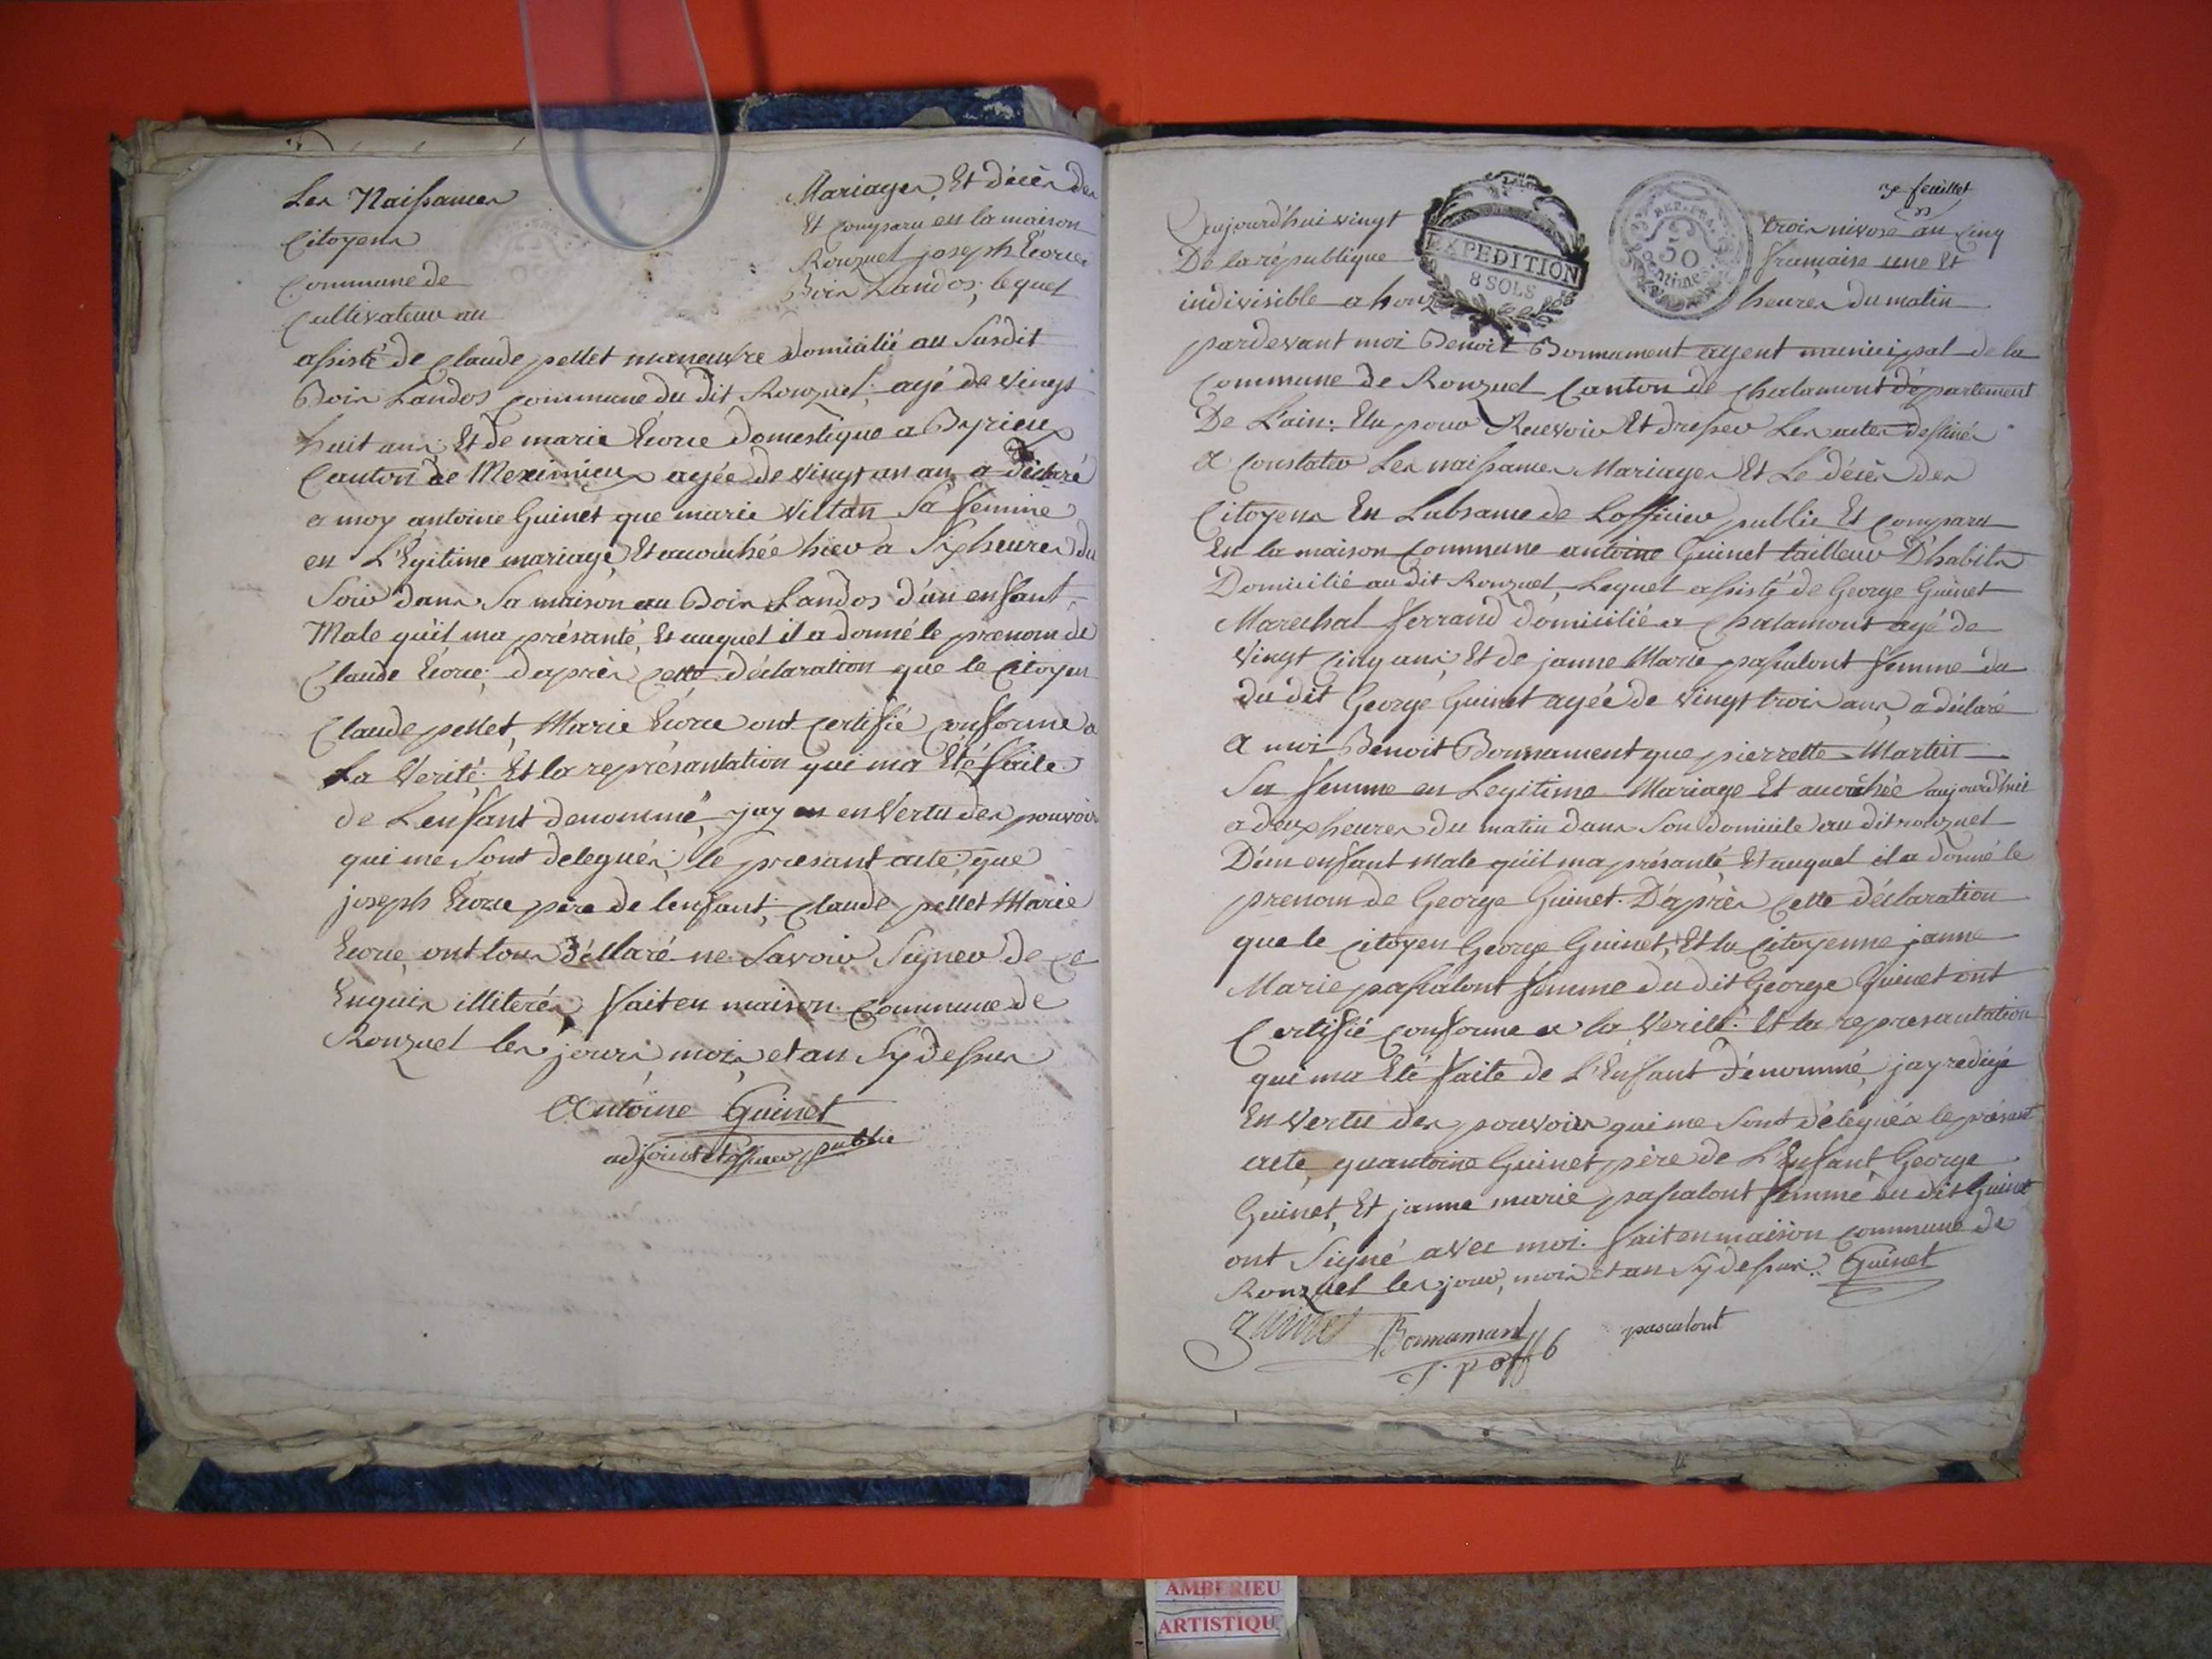 Les Naissances Mariages, Et décès des
Citoyens Et comparu en la maison
Commune de Ronzuel joseph Ecorce
Cultivateur au Bois Landos; lequel
assisté de Claude pellet maneuvre domicilié au Susdit
Bois Landos Commune du dit Ronzuel; agé de vingt
huit ans; Et de marie Ecorce domestique a Byrieux
Canton de Meximieux agée de vingt un an a déclaré
a moy antoine Guinet que marie Viltan Sa femme
en L'Egitime mariage, Et acouchée hier a Six heures du
Soir dans Sa maison au Bois Landos d'un enfant
Male qu'il ma présanté, Et auquel il a donné le prenom de
Claude Ecorce; daprès cette déclaration que le Citoyen
Claude pellet, Marie Ecorce ont certifié conforme a
La Verité: Et la représantation qui ma Eté faite
de L'enfant denommé, jay en Vertu des pouvoirs
qui me Sont delegués; le presant acte; que
joseph Ecorce père de lenfant; Claude pellet Marie
Ecorce, ont tous déllaré ne Savoir Signer de ce
Enquis illiterés, fait en maison Commune de
Ronzuel les jours, mois, et an Sy dessus
Antoine Guinet
adjoint et officier public
3e feuillet
Aujourd'hui vingt trois nivose an Cinq
De la république française une Et
indivisible a honze heures du matin
EXPEDITION
8 SOLS
REP. FRA.
50
centimes
pardevant moi Benoit Bonnament agent municipal de la
Commune de Ronzuel Canton de Chalamont département
De L'ain: Elu pour Recevoir Et dresser Les actes destinés
a Constater Les naissances Mariages Et Le décès des
Citoyens En Labsance de Lofficier public Et Comparu
En la maison Commune antoine Guinet tailleur D'habits
Domicilié au dit Ronzuel, Lequel assisté de George Guinet
Marechal ferrand domicilié a Chalamont agé de
vingt Cinq ans; Et de janne Marie pascalont femme du
du dit George Guinet agée de vingt trois ans, a déclaré
a moi Benoit Bonnament que pierrette Martin
Sa femme en Legitime Mariage Et acouchée aujourd'huit
a deux heures du matin dans Son domicile au dit ronzuel
D'un enfant Male qu'il ma présanté, Et auquel il a donné le
prenom de George Guinet. D'après Cette déclaration
que le Citoyen George Guinet, Et la Citoyenne janne
Marie pascalont femme du dit George Guinet ont
Certifié conforme a la Verité: Et la representation
qui ma Eté faite de L'Enfant dénommé, jay redigé
En Vertu des pouvoirs qui me Sont délegués le présant
acte, quantoine Guinet père de L'Enfant, George
Guinet, Et janne marie pascalont femme du dit Guinet
ont Signé avec moi. fait en maison Commune de
Ronzuel les jour, mois et an Sy dessus. Guinet
guinet Bonnamant pascalont
AMBERIEU
ARTISTIQU